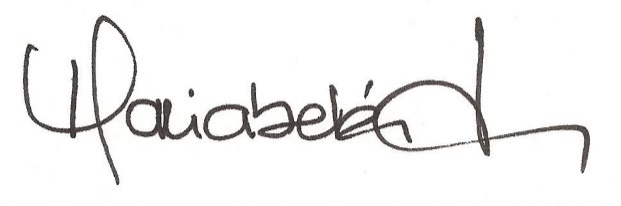 Mariabelén